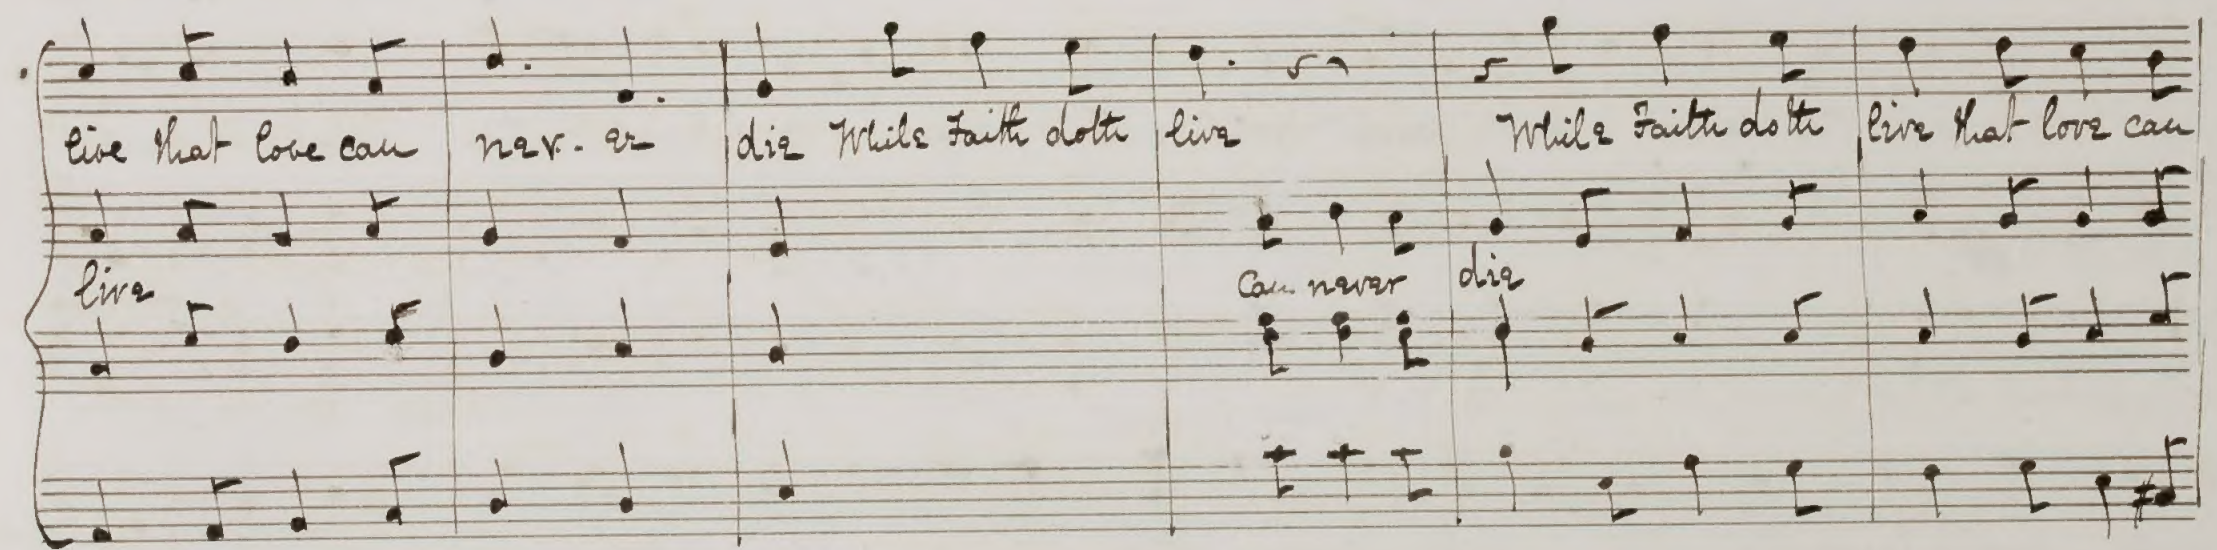 live that love can nev. er die While Faith doth live While Faith doth live that love can
live can never die